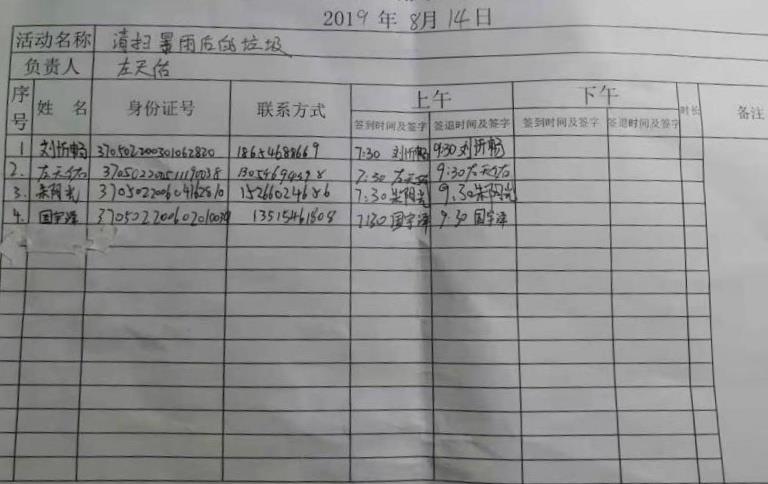 2019 年 8月 14日
活动名称 清扫暴雨后的垃圾
负责人 左天佑
序号 姓 名 身份证号 联系方式 上午 下午 时长 备注
签到时间及签字 签退时间及签字 签到时间及签字 签退时间及签字
1 刘忻畅 370502200301062820 7:30 刘忻畅 9:30 刘忻畅
2. 左天佑 7:30 左天佑 9:30 左天佑
3. 朱阳光 370502200604162810 15266024686 7:30 朱阳光 9.30 朱阳光
4. 国宇泽 13515461808 7:30 国宇泽 9:30 国宇泽